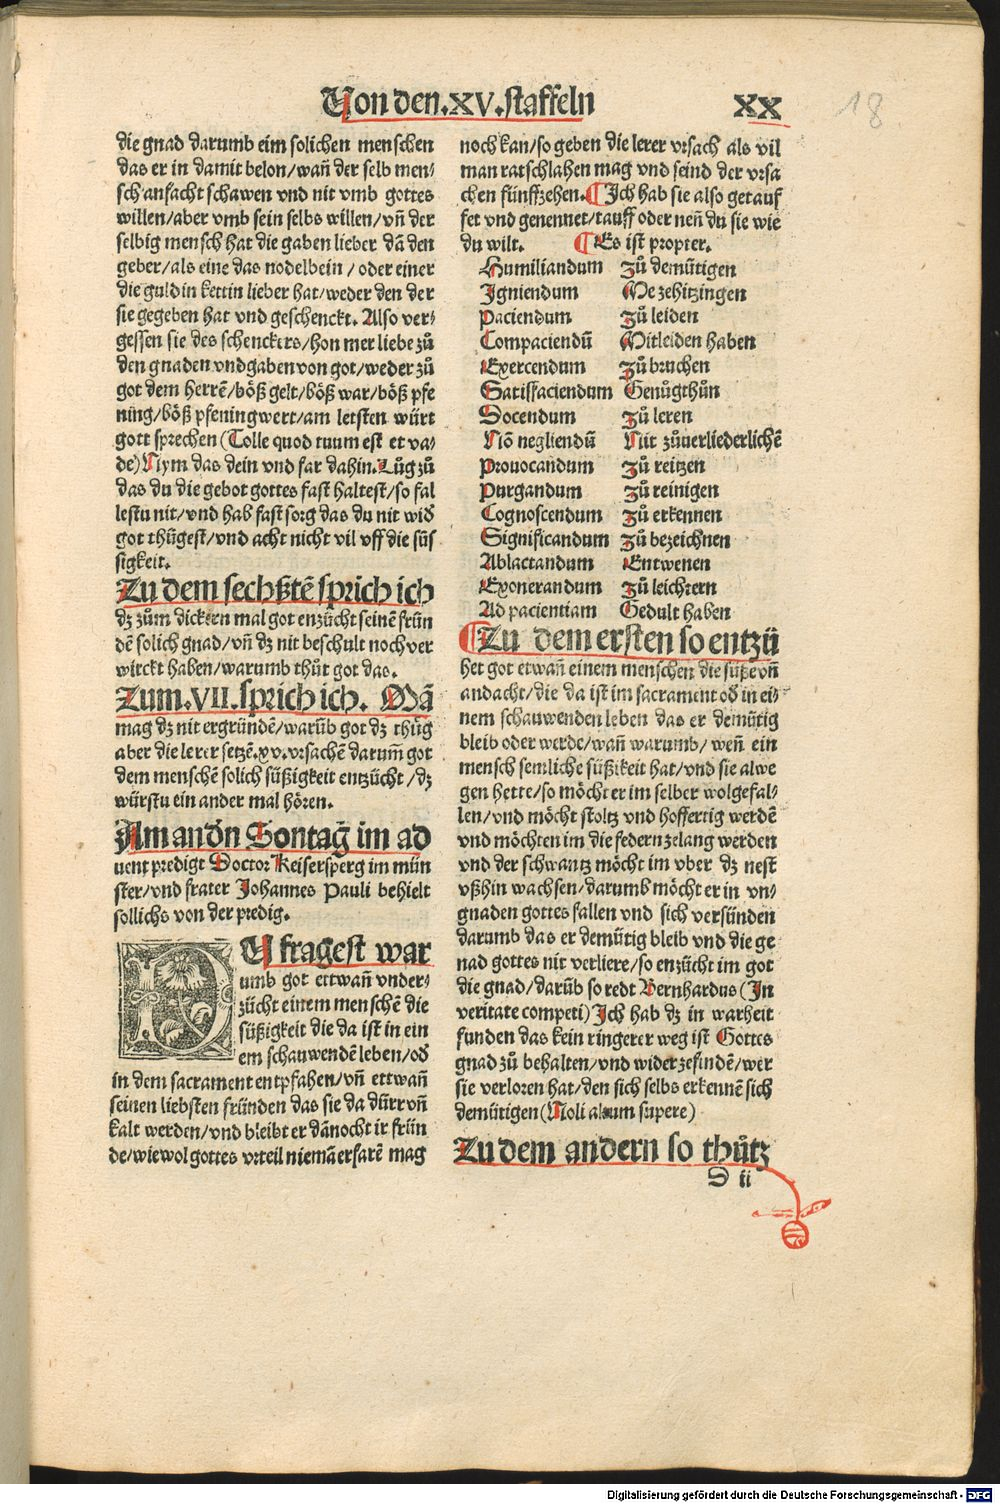 Von den .XV. staffeln
XX
18
die gnad darumb eim solichen menschen
das er in damit belon/wañ der selb men⸗
sch anfacht schawen vnd nit vmb gottes
willen/aber vmb sein selbs willen/vñ der
selbig mensch hat die gaben lieber dã den
geber/als eine das nodelbein/oder einer
die guldin kettin lieber hat/weder den der
sie gegeben hat vnd geschenckt. Also ver⸗
gessen sie des schenckers/hon mer liebe zů
den gnaden vnd gaben von got/weder zů
got dem herrẽ/böß gelt/böß war/böß pfe
ning/böß pfeningwert/am letsten würt
gott sprechen (Tolle quod tuum est et va⸗
de) Nym das dein vnd far dahin. Lůg zů
das du die gebot gottes fast haltest/so fal
lestu nit/vnd hab fast sorg das du nit wid̕
got thügest/vnd acht nicht vil vff die süs
sigkeit.
Zu dem sechßtẽ sprich ich
dz zům dickern mal got enzücht seinẽ frün
dẽ solich gnad/vñ dz nit beschult noch ver
wirckt haben/warumb thůt got das.
Zum .VII. sprich ich. Mã
mag dz nit ergründẽ/warũb got dz thůg
aber die lerer setzẽ .xv. vrsachẽ darum̃ got
dem menschẽ solich süßigkeit entzücht/dz
würstu ein ander mal hören.
Am andn̄ Sontag im ad
uent predigt Doctor Keisersperg im mün
ster/vnd frater Johannes Pauli behielt
sollichs von der predig.
DU fragest war
umb got ettwañ vnder⸗
zücht einem menschẽ die
süßigkeit die da ist in ein
em schauwendẽ leben/od̕
in dem sacrament entpfahen/vñ ettwañ
seinen liebsten fründen das sie da dürr vñ
kalt werden/vnd bleibt er dãnocht ir frün
de/wiewol gottes vrteil niemã erfarẽ mag
noch kan/so geben die lerer vrsach als vil
man ratschlahen mag vnd seind der vrsa
chen fünffzehen. ¶ Ich hab sie also getauf
fet vnd genennet/tauff oder neñ du sie wie
du wilt. ¶ Es ist propter.
Humiliandum Zů demütigen
Igniendum Me zehitzingen
Paciendum Zů leiden
Compaciendũ Mitleiden haben
Exercendum Zů bruchen
Satisfaciendum Genůgthůn
Docendum Zů leren
Nõ negliendũ Nüt zůuerliederlichẽ
Prouocandum Zů reitzen
Purgandum Zů reinigen
Cognoscendum Zů erkennen
Significandum Zů bezeichnen
Ablactandum Entwenen
Exonerandum Zů leichtern
Ad pacientiam Gedult haben
¶ Zu dem ersten so entzü
het got etwañ einem menschen die süße vñ
andacht/die da ist im sacrament od̕ in ei⸗
nem schauwenden leben das er demütig
bleib oder werde/wañ warumb/weñ ein
mensch semliche süßikeit hat/vnd sie alwe
gen hette/so möcht er im selber wolgefal⸗
len/vnd möcht stoltz vnd hoffertig werdẽ
vnd möchten im die federn zelang werden
vnd der schwantz möcht im vber dz nest
vßhin wachsen/darumb möcht er in vn⸗
gnaden gottes fallen vnd sich versünden
darumb das er demütig bleib vnd die ge
nad gottes nit verliere/so enzücht im got
die gnad/darũb so redt Bernhardus (In
veritate competi) Ich hab dz in warheit
funden das kein ringerer weg ist Gottes
gnad zů behalten/vnd wider zefindẽ/wer
sie verloren hat/den sich selbs erkennẽ sich
demütigen (Noli altum supere)
Zu dem andern so thůtz
D ii
Digitalisierung gefördert durch die Deutsche Forschungsgemeinschaft - DFG